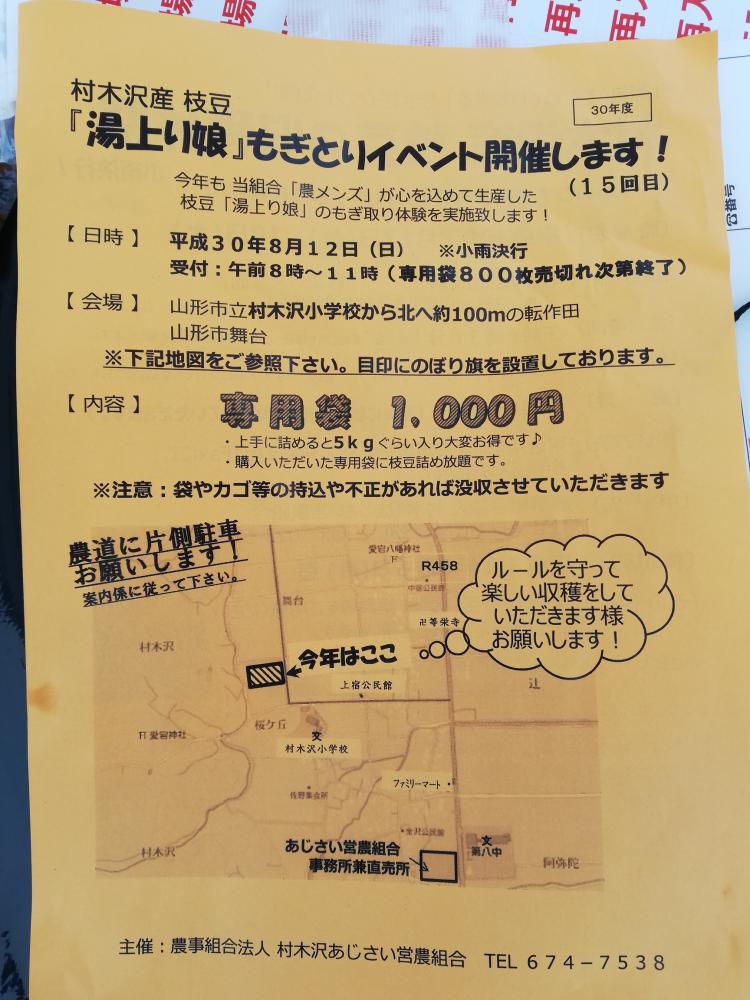 村木沢産 枝豆
30年度
『湯上り娘』もぎとりイベント開催します!
(15回目)
今年も 当組合「農メンズ」が心を込めて生産した
枝豆「湯上り娘」のもぎ取り体験を実施致します!
【 日時 】 平成30年8月12日(日) ※小雨決行
受付:午前8時~11時(専用袋800枚売切れ次第終了)
【 会場 】 山形市立村木沢小学校から北へ約100mの転作田
山形市舞台
※下記地図をご参照下さい。目印にのぼり旗を設置しております。
【 内容 】 専用袋 1,000円
・上手に詰めると5kgぐらい入り大変お得です♪
・購入いただいた専用袋に枝豆詰め放題です。
※注意:袋やカゴ等の持込や不正があれば没収させていただきます
農道に片側駐車
お願いします!
案内係に従って下さい。
愛宕八幡神社
R458
中宿公民館
舞台
卍等栄寺
ルールを守って
楽しい収穫をして
いただきます様
お願いします!
村木沢
今年はここ
上宿公民館
辻
桜ケ丘
愛宕神社
文
村木沢小学校
ファミリーマート
佐野集会所
金沢公民館
村木沢
あじさい営農組合
事務所兼直売所
文
第八中
阿弥陀
主催:農事組合法人 村木沢あじさい営農組合 TEL 674-7538